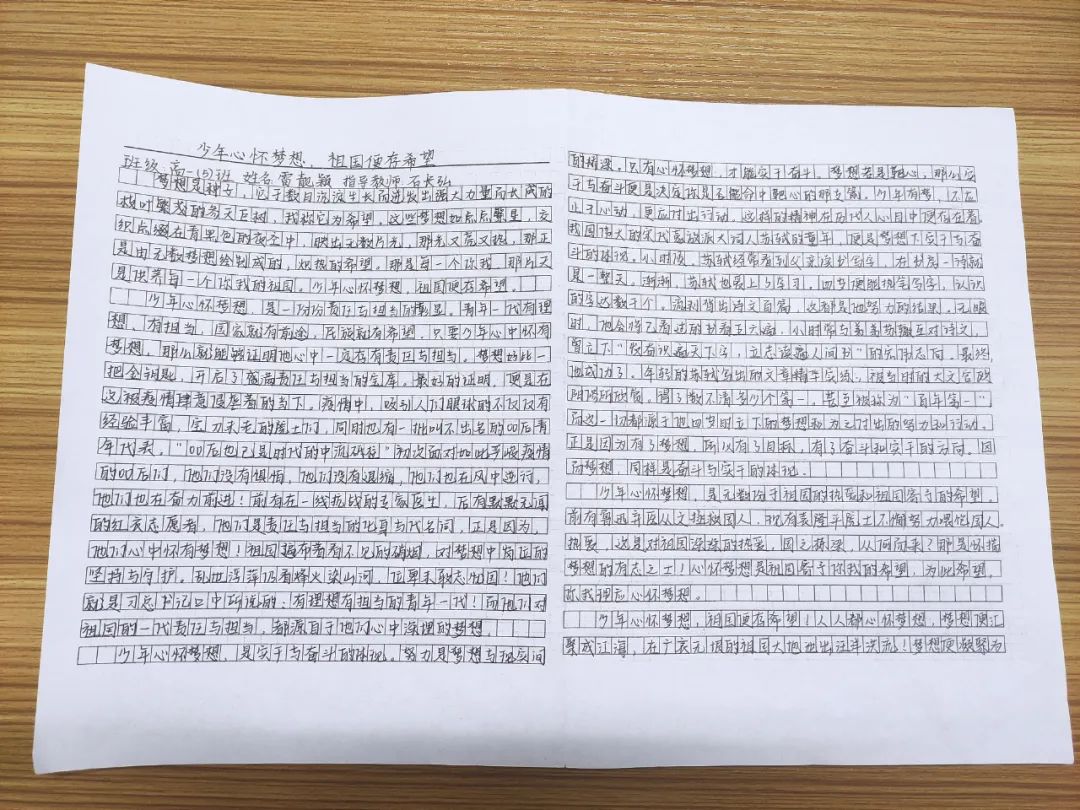 少年心怀梦想、祖国便存希望
班级 高一(5)班 姓名 雷靓颖 指导教师 石长弘
梦想是种子，它于数日沉淀生长而迸发出强大力量而长成的
枝叶繁茂的参天巨树，我称它为希望。这些梦想如点点繁星，交
织点缀在青黑色的夜空中，映出无数片光，那光又亮又热，那正
是由无数梦想绘制成的，炽热的希望。那是每一个你我，那片天
是供养每一个你我的祖国。少年心怀梦想，祖国便存希望。
少年心怀梦想，是一份份责任与担当的彰显。青年一代有理
想，有担当，国家就有前途，民族就有希望。只要少年心中怀有
梦想，那么就能够证明他心中一定存有责任与担当。梦想好比一
把金钥匙，开启了盛满责任与担当的宝库。最好的证明，便是在
这被疫情肆意侵害着的当下。疫情中，吸引人们眼球的不仅仅有
经验丰富，宝刀未老的医士们，同时也有一批叫不出名的00后青
年代表。“00后也已是时代的中流砥柱”初次面对如此严峻疫情
的00后们，他们没有惧怕，他们没有退缩，他们也在风中逆行，
他们也在奋力前进！前有在一线抗战的专家医生，后有默默无闻
的红衣志愿者，他们是责任与担当的化身与代名词，正是因为，
他们心中怀有梦想！祖国遍布着看不见的硝烟，对梦想中简正的
坚持与守护。乱世浮萍仍看烽火染山河，位卑未敢忘忧国！他们
就是习总书记口中所说的：有理想有担当的青年一代！而他们对
祖国的一代责任与担当，都源自于他们心中深埋的梦想。
少年心怀梦想，是实干与奋斗的体现。努力是梦想与现实间
的桥梁。只有心怀梦想，才能实于奋斗。梦想若是靶心，那么实
干与奋斗便是决定你是否能命中靶心的那支箭。少年有梦，不应
止于心动，更应付出行动。这样的精神在历代人心目中便存在着。
我国伟大的宋代豪放派大词人苏轼的童年，便是梦想下实干与奋
斗的体现。小时候，苏轼经常看到父亲读书写字，在书房一待就
是一整天。渐渐，苏轼也爱上了学习。四岁便能执笔写字，认识
的字达数千个，流利背出诗文百篇，这都是他努力的结果。无眠
时，他会将已看过的书看了六遍，小时常与弟弟苏辙互对诗文，
曾立下“发奋识遍天下字，立志读遍人间书”的宏伟志向。最终
他成功了。年轻的苏轼写出的文章精于实练，被当时的大文官欧
阳修所欣赏。得了数不清多少个第一，甚至被称为“百年第一”
而这一切都源于他四岁时立下的梦想和为之付出的努力和行动。
正是因为有了梦想，所以有了目标，有了奋斗和实干的方向。因
而梦想，同样是奋斗与实干的体现。
少年心怀梦想，是无数份于祖国的热爱和祖国寄予的希望。
前有鲁迅弃医从文拯救国人，现有袁隆平院士不懈努力喂饱国人。
热爱，这是对祖国深深的热爱，国之栋梁，从何而来？那是怀揣
梦想的有志之士！心怀梦想是祖国寄予你我的希望，为此希望，
你我理应心怀梦想。
少年心怀梦想，祖国便存希望！人人都心怀梦想，梦想便汇
聚成江海，在广袤无垠的祖国大地泄出汪洋洪流！梦想便凝聚为